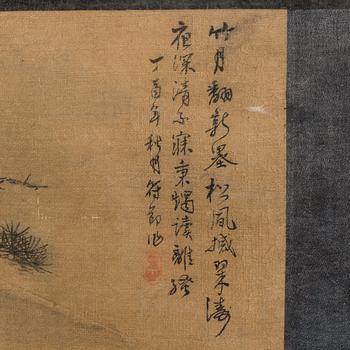 竹月翻新墨松風撼翠濤
夜深清不寐秉燭讀離騷
丁酉年秋月符節作